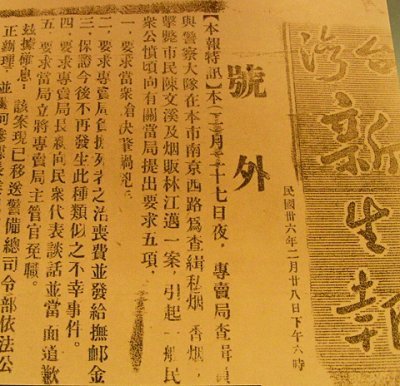 台灣新生報
民國卅六年二月廿八日下午六時
號外
【本報特訊】本 月 十七日夜,專賣局查緝員
與警察大隊在本市南京西路為查緝私烟 香烟,
擊斃市民陳文溪及烟販林江邁一案,引起一般民
眾公憤頃向有關當局提出要求五項,
一、要求當衆 決 禍犯
二、要求專賣局負擔死者之治喪費並發給撫卹金
三、保證今後不再發生此種類似之不幸事件。
四、要求專賣局長 向民衆代表談話並當面道歉
五、要求當局立將專賣局主管官免職。
玆據確息:該案現已移送警備總司令部依法公
正辦理,並